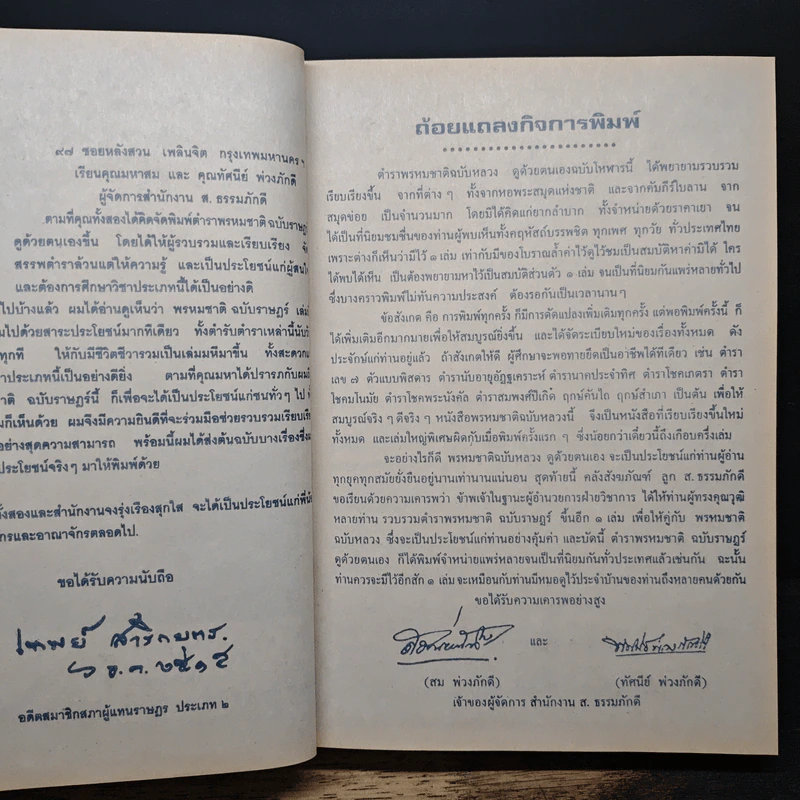 ๙๗ ซอยหลังสวน เพลินจิต กรุงเทพมหานคร ฯ
เรียนคุณมหาสม และ คุณทัศนีย์ พ่วงภักดี
ผู้จัดการสำนักงาน ส. ธรรมภักดี
ตามที่คุณทั้งสองได้คิดจัดพิมพ์ตำราพรหมชาติ ฉบับราษฎร์
ดูด้วยตนเองขึ้น โดยได้ให้ผู้รวบรวมและเรียบเรียง
สรรพตำราล้วนแต่ให้ความรู้ และเป็นประโยชน์แก่ผู้สนใ
และต้องการศึกษาวิชาประเภทนี้ได้เป็นอย่างดี
ไปบ้างแล้ว ผมได้อ่านดูเห็นว่า พรหมชาติ ฉบับราษฎร์ เล่ม
นไปด้วยสาระประโยชน์มากทีเดียว ทั้งตำรับตำราเหล่านี้นับวั
ทุกที ให้กับมีชีวิตชีวารวมเป็นเล่มมหึมาขึ้น ทั้งสะดวก
าประเภทนี้เป็นอย่างดียิ่ง ตามที่คุณมหาได้ปรารภกับผม
ติ ฉบับราษฎร์นี้ ก็เพื่อจะได้เป็นประโยชน์แก่ชนทั่วๆ ไป
มก็เห็นด้วย ผมจึงมีความยินดีที่จะร่วมมือช่วยรวบรวมเรียบเรี
อย่างสุดความสามารถ พร้อมนี้ผมได้ส่งต้นฉบับบางเรื่องซึ่ง
ประโยชน์จริงๆ มาให้พิมพ์ด้วย
ั้งสองและสำนักงานจงรุ่งเรืองสุกใส จะได้เป็นประโยชน์แก่พี่น้
กรและอาณาจักรตลอดไป.
ขอได้รับความนับถือ
เทพย์ สาริกบุตร.
๖ ธ.ค. ๒๕๑๕
อดีตสมาชิกสภาผู้แทนราษฎร ประเภท ๒
ถ้อยแถลงกิจการพิมพ์
ตำราพรหมชาติฉบับหลวง ดูด้วยตนเองฉบับโหฬารนี้ ได้พยายามรวบรวม
เรียบเรียงขึ้น จากที่ต่าง ๆ ทั้งจากหอพระสมุดแห่งชาติ และจากคัมภีร์ใบลาน จาก
สมุดข่อย เป็นจำนวนมาก โดยมิได้คิดแก่ยากลำบาก ทั้งจำหน่ายด้วยราคาเยา จน
ได้เป็นที่นิยมชมชื่นของท่านผู้พบเห็นทั้งคฤหัสถ์บรรพชิต ทุกเพศ ทุกวัย ทั่วประเทศไทย
เพราะต่างก็เห็นว่ามีไว้ ๑ เล่ม เท่ากับมีของโบราณล้ำค่าไว้ดูไว้ชมเป็นสมบัติหาค่ามิได้ ใคร
ได้พบได้เห็น เป็นต้องพยายามหาไว้เป็นสมบัติส่วนตัว ๑ เล่ม จนเป็นที่นิยมกันแพร่หลายทั่วไป
ซึ่งบางคราวพิมพ์ไม่ทันความประสงค์ ต้องรอกันเป็นเวลานาน ๆ
ข้อสังเกต คือ การพิมพ์ทุกครั้ง ก็มีการดัดแปลงเพิ่มเติมทุกครั้ง แต่พอพิมพ์ครั้งนี้ ก็
ได้เพิ่มเติมอีกมากมายเพื่อให้สมบูรณ์ยิ่งขึ้น และได้จัดระเบียบใหม่ของเรื่องทั้งหมด ดัง
ประจักษ์แก่ท่านอยู่แล้ว ถ้าสังเกตให้ดี ผู้ศึกษาจะพอทายยึดเป็นอาชีพได้ทีเดียว เช่น ตำรา
เลข ๗ ตัวแบบพิสดาร ตำรานับอายุอัฐเคราะห์ ตำรานาคประจำทิศ ตำราโชคเกตรา ตำรา
โชคมโนมัย ตำราโชคพระนังคัล ตำราสมพงศ์ปีเกิด ฤกษ์คันไถ ฤกษ์สำเภา เป็นต้น เพื่อให้
สมบูรณ์จริง ๆ ดีจริง ๆ หนังสือพรหมชาติฉบับหลวงนี้ จึงเป็นหนังสือที่เรียบเรียงขึ้นใหม่
ทั้งหมด และเล่มใหญ่พิเศษผิดกับเมื่อพิมพ์ครั้งแรก ๆ ซึ่งน้อยกว่าเดี๋ยวนี้ถึงเกือบครึ่งเล่ม
จะอย่างไรก็ดี พรหมชาติฉบับหลวง ดูด้วยตนเอง จะเป็นประโยชน์แก่ท่านผู้อ่าน
ทุกยุคทุกสมัยยั่งยืนอยู่นานเท่านานแน่นอน สุดท้ายนี้ คลังสังฆภัณฑ์ ลูก ส. ธรรมภักดี
ขอเรียนด้วยความเคารพว่า ข้าพเจ้าในฐานะผู้อำนวยการฝ่ายวิชาการ ได้ให้ท่านผู้ทรงคุณวุฒิ
หลายท่าน รวบรวมตำราพรหมชาติ ฉบับราษฎร์ ขึ้นอีก ๑ เล่ม เพื่อให้คู่กับ พรหมชาติ
ฉบับหลวง ซึ่งจะเป็นประโยชน์แก่ท่านอย่างคุ้มค่า และบัดนี้ ตำราพรหมชาติ ฉบับราษฎร์
ดูด้วยตนเอง ก็ได้พิมพ์จำหน่ายแพร่หลายจนเป็นที่นิยมกันทั่วประเทศแล้วเช่นกัน ฉะนั้น
ท่านควรจะมีไว้อีกสัก ๑ เล่ม จะเหมือนกับท่านมีหมอดูไว้ประจำบ้านของท่านถึงหลายคนด้วยกัน
ขอได้รับความเคารพอย่างสูง
และ
(สม พ่วงภักดี) (ทัศนีย์ พ่วงภักดี)
เจ้าของผู้จัดการ สำนักงาน ส. ธรรมภักดี